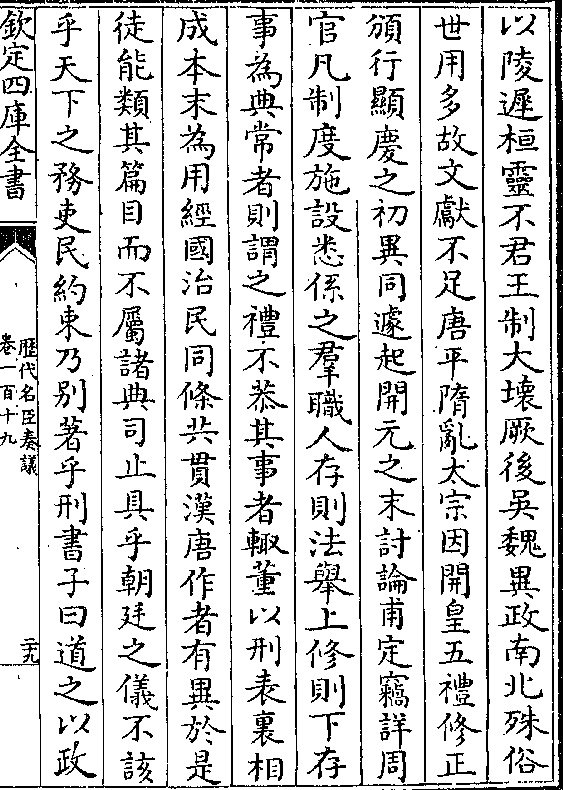 以陵遲桓靈不君王制大壞厥後吳魏異政南北殊俗
世用多故文獻不足唐平隋亂太宗因開皇五禮修正
頒行顯慶之初異同遽起開元之末討論甫定竊詳周
官凡制度施設悉係之羣職人存則法舉上修則下存
事為典常者則謂之禮不恭其事者輙董以刑表裏相
成本末為用經國治民同條共貫漢唐作者有異於是
徒能類其篇目而不屬諸典司止具乎朝廷之儀不該
乎天下之務吏民約束乃别著乎刑書子曰道之以政
欽定四庫全書
歷代名臣奏議
卷一百十九
二九